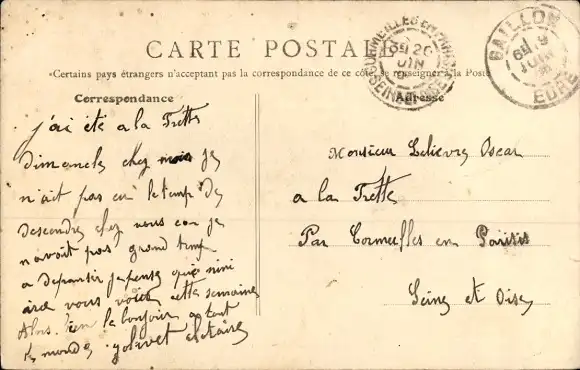 CARTE POSTALE
Certains pays étrangers n'acceptant pas la correspondance de ce côté, se renseigner à la Poste
Correspondance
Adresse
GAILLON
EURE
CORMEILLES EN PARISIS
SEINE ET OISE
j'ai été a la Frette
Dimanche chez je
n'ait pas eu le temp de
Descendre chez vous car je
n'avoit pas grand temp
a depenser je pense que nini
vous voir cette semaine
Alors bien le bonjour a tout
le monde
Monsieur Lelievre Oscar
a la Frette
Par Cormeilles en Parisis
Seine et Oise